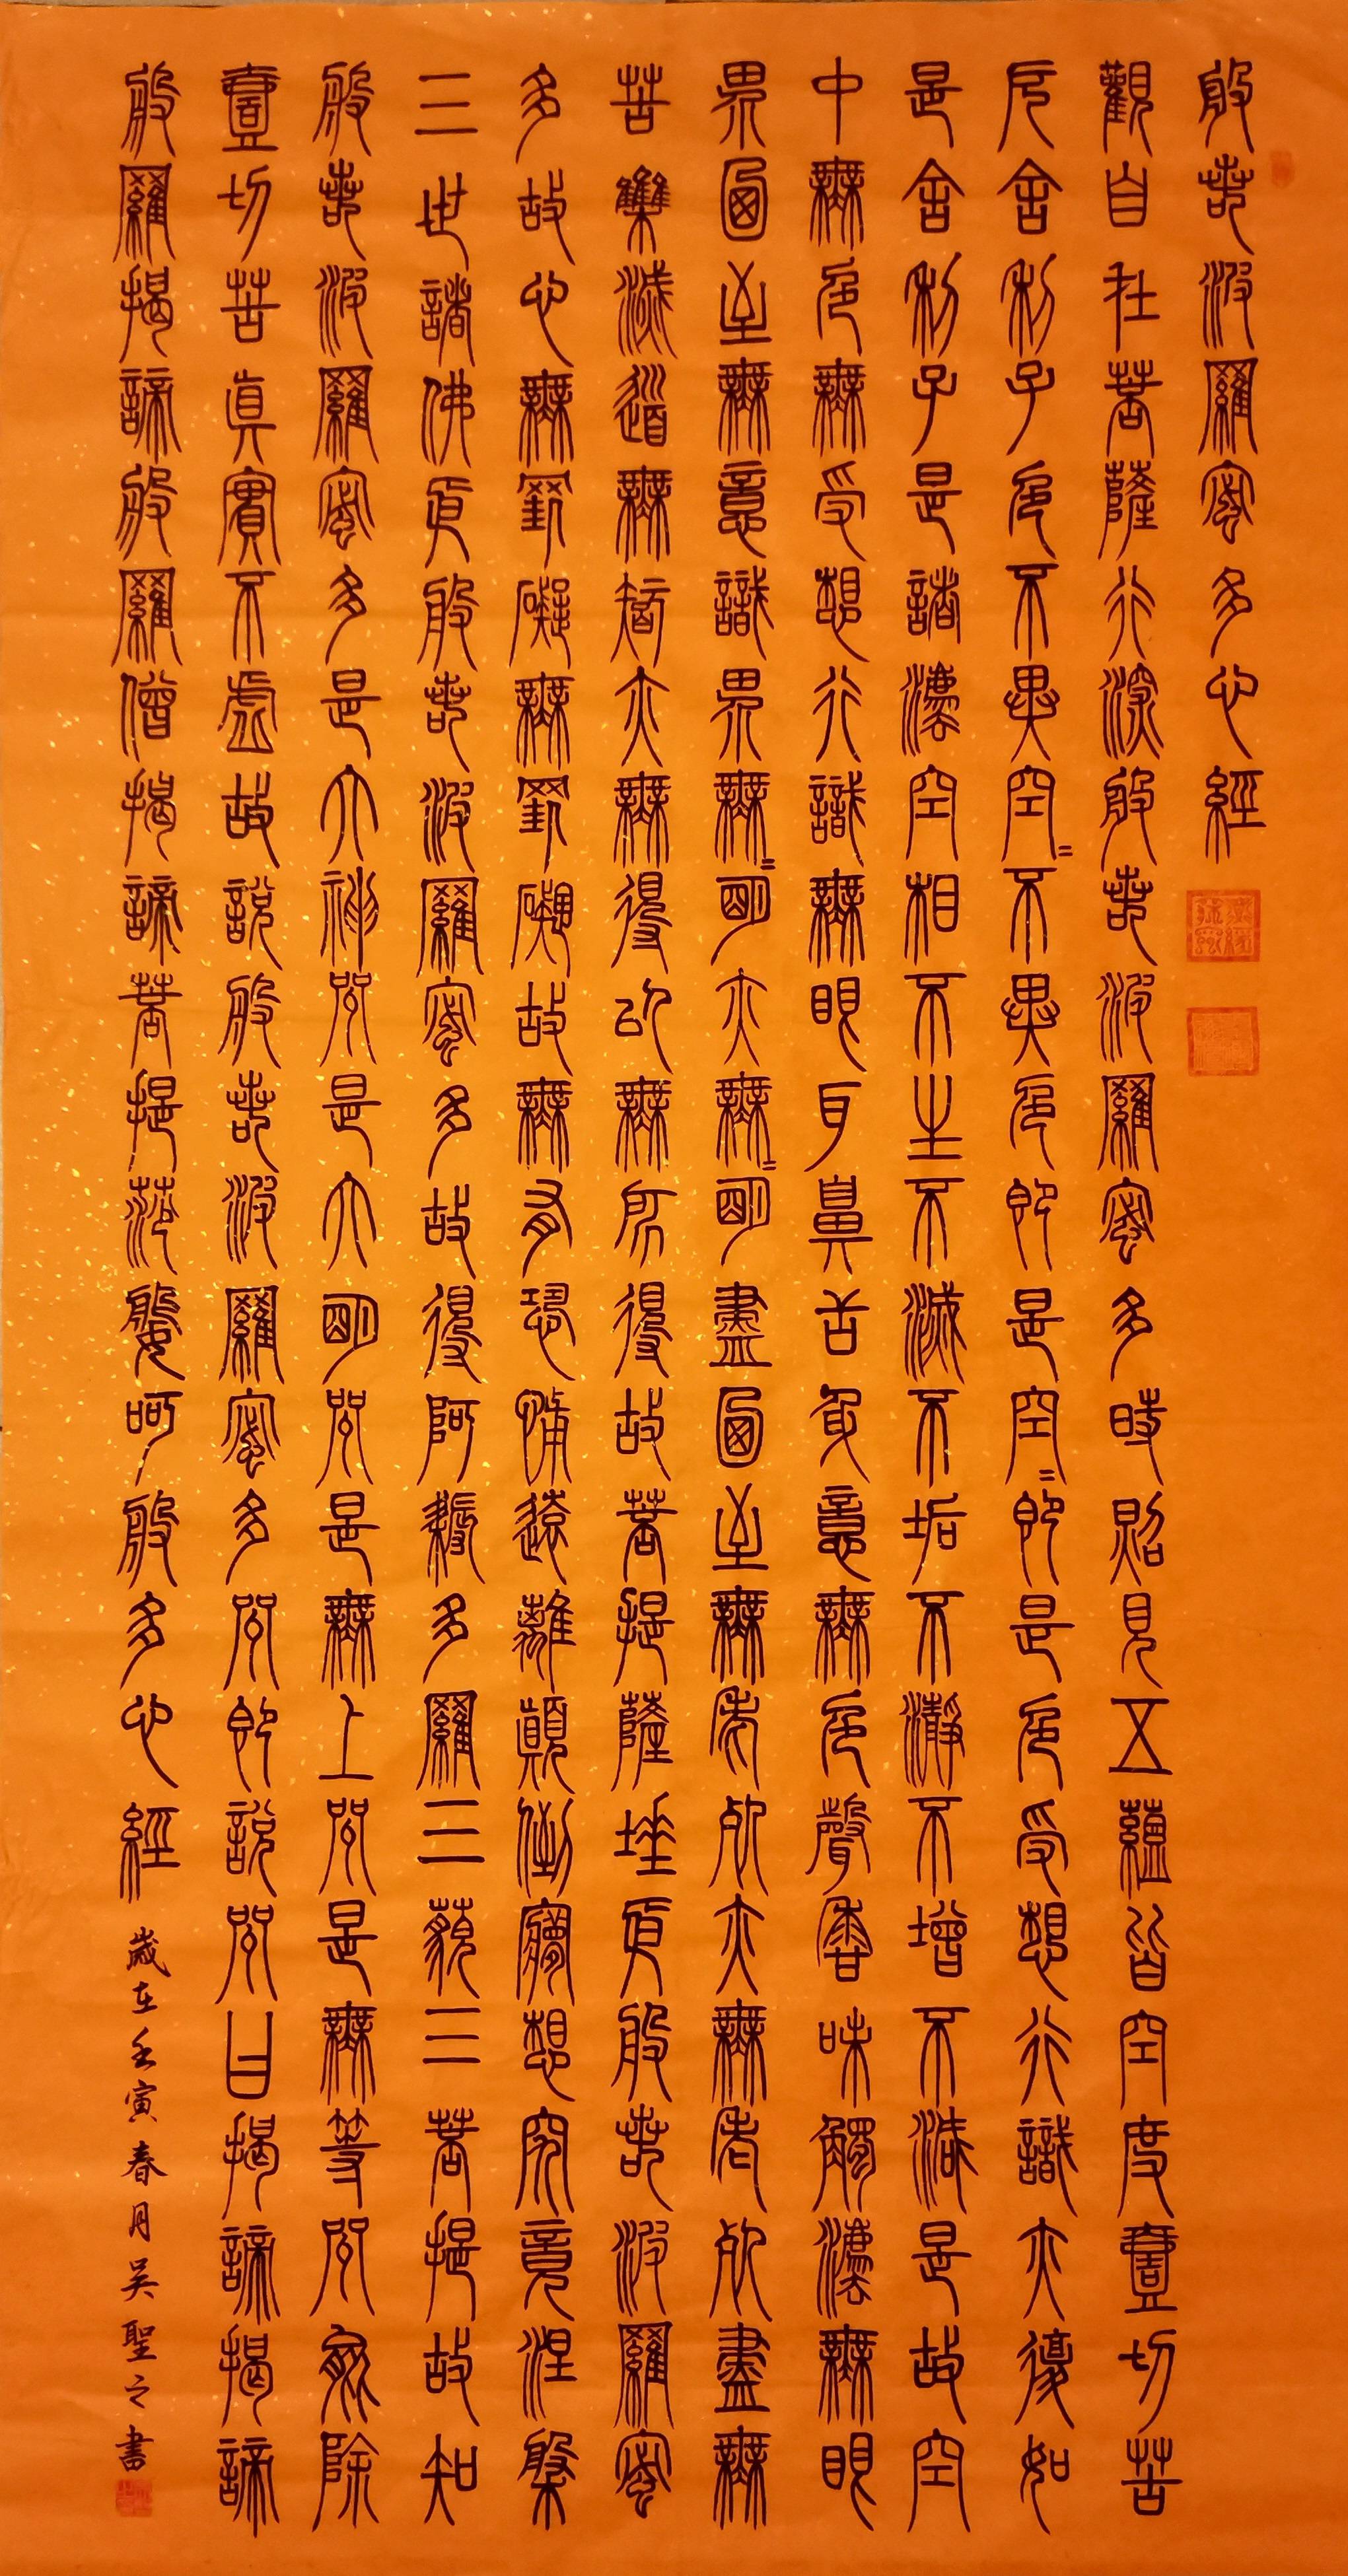 般若波羅蜜多心經
觀自在菩薩行深般若波羅蜜多時照見五蘊皆空度壹切苦
厄舍利子色不異空=不異色即是空=即是色受想行識亦復如
是舍利子是諸灋空相不生不滅不垢不瀞不增不減是故空
中無色無受想行識無眼耳鼻舌身意無色聲香味觸灋無眼
界乃至無意識界無=明亦無=明盡乃至無老死亦無老死盡無
苦集滅道無智亦無得以無所得故菩提薩埵依般若波羅蜜
多故心無罣礙無罣礙故無有恐怖遠離顛倒夢想究竟涅槃
三世諸佛依般若波羅蜜多故得阿耨多羅三藐三菩提故知
般若波羅蜜多是大神咒是大明咒是無上咒是無等咒能除
壹切苦真實不虛故說般若波羅蜜多咒即說咒曰揭諦揭諦
般羅揭諦般羅僧揭諦菩提莎婆呵般多心經
歲在壬寅春月吳聖之書